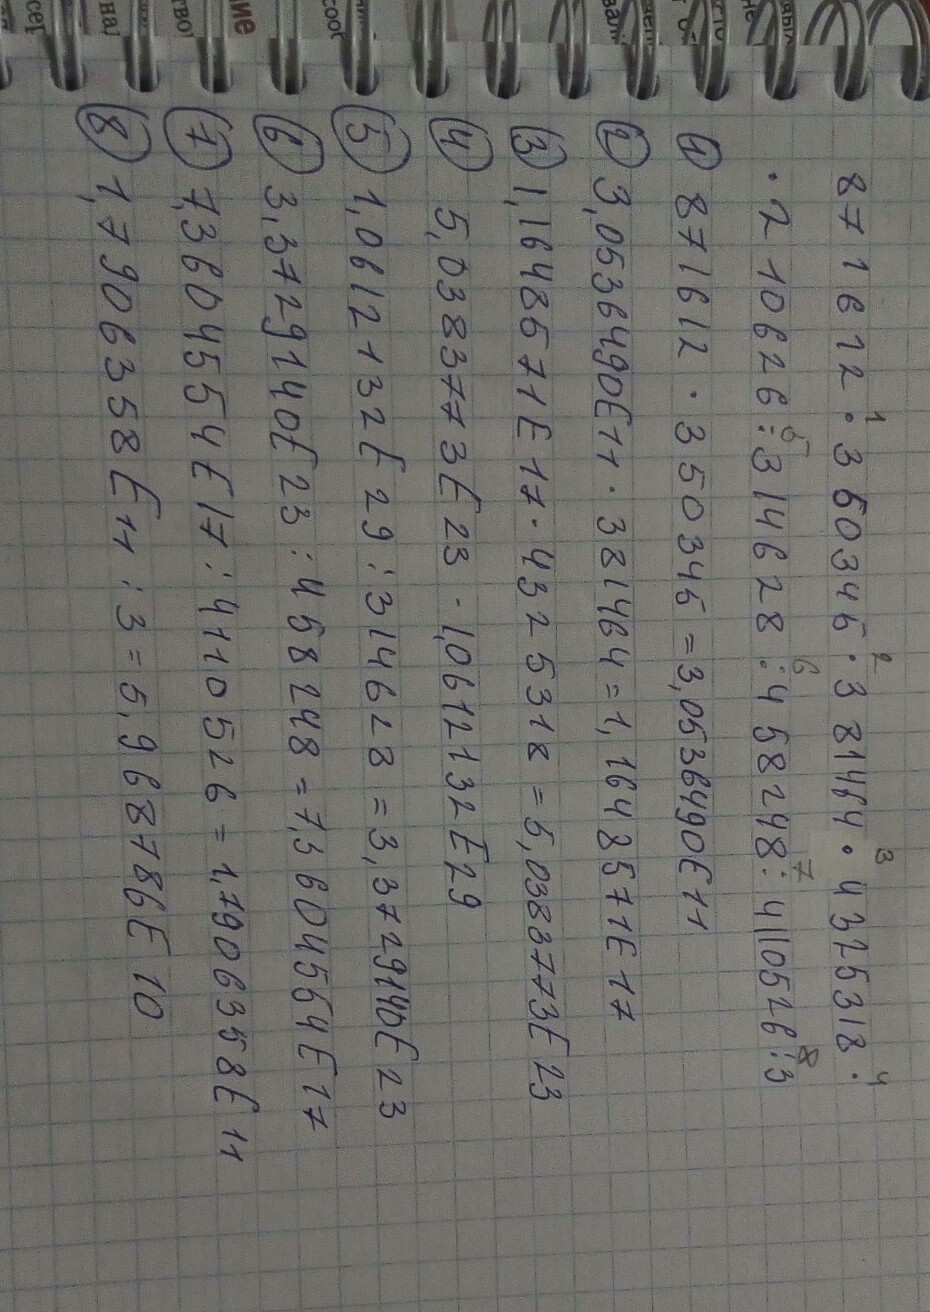 871612 · 350345 · 381464 · 4325318 ·
· 210626 : 314628 : 458248 : 4110526 : 3
1 871612 · 350345 = 3,0536490E11
2 3,0536490E11 · 381464 = 1,1648571E17
3 1,1648571E17 · 4325318 = 5,0383773E23
4 5,0383773E23 · 1,0612132E29
5 1,0612132E29 : 314628 = 3,3729140E23
6 3,3729140E23 : 458248 = 7,3604554E17
7 7,3604554E17 : 4110526 = 1,7906358E11
8 1,7906358E11 : 3 = 5,968786E10